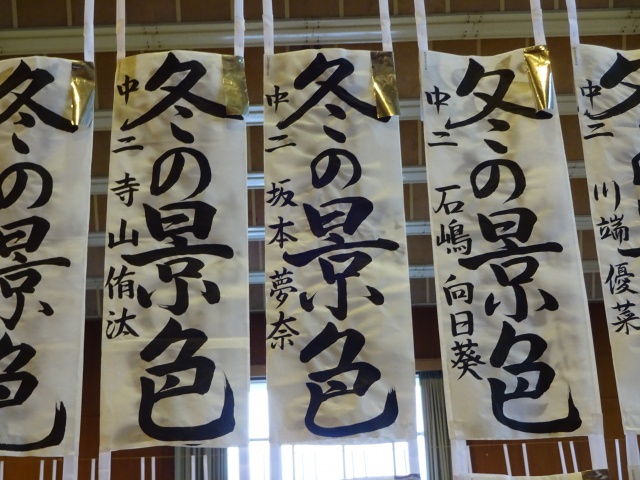 冬
中二 川端優菜
冬の景色
中二 石嶋向日葵
冬の景色
中二 坂本夢奈
冬の景色
中三 寺山侑汰
冬の景色